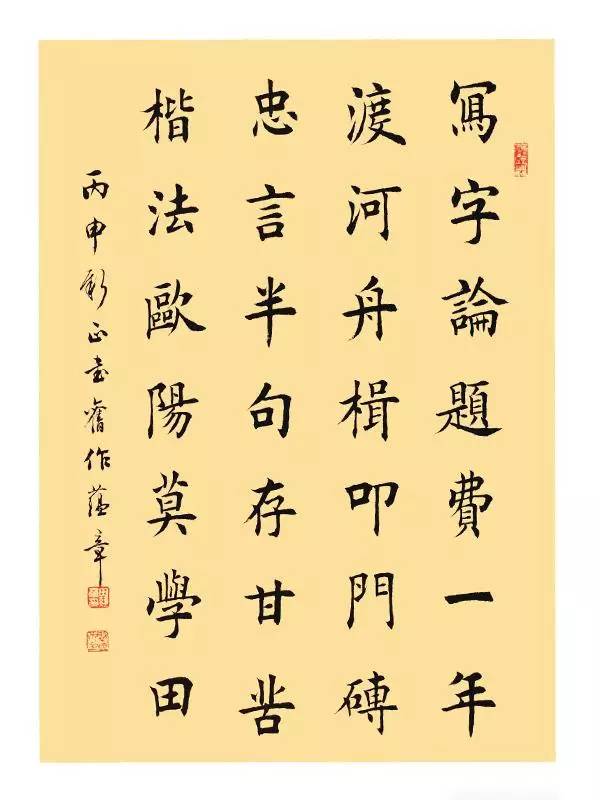 寫字論題費一年
渡河舟楫叩門磚
忠言半句存甘苦
楷法歐陽莫學田
丙申新正書舊作蘊章